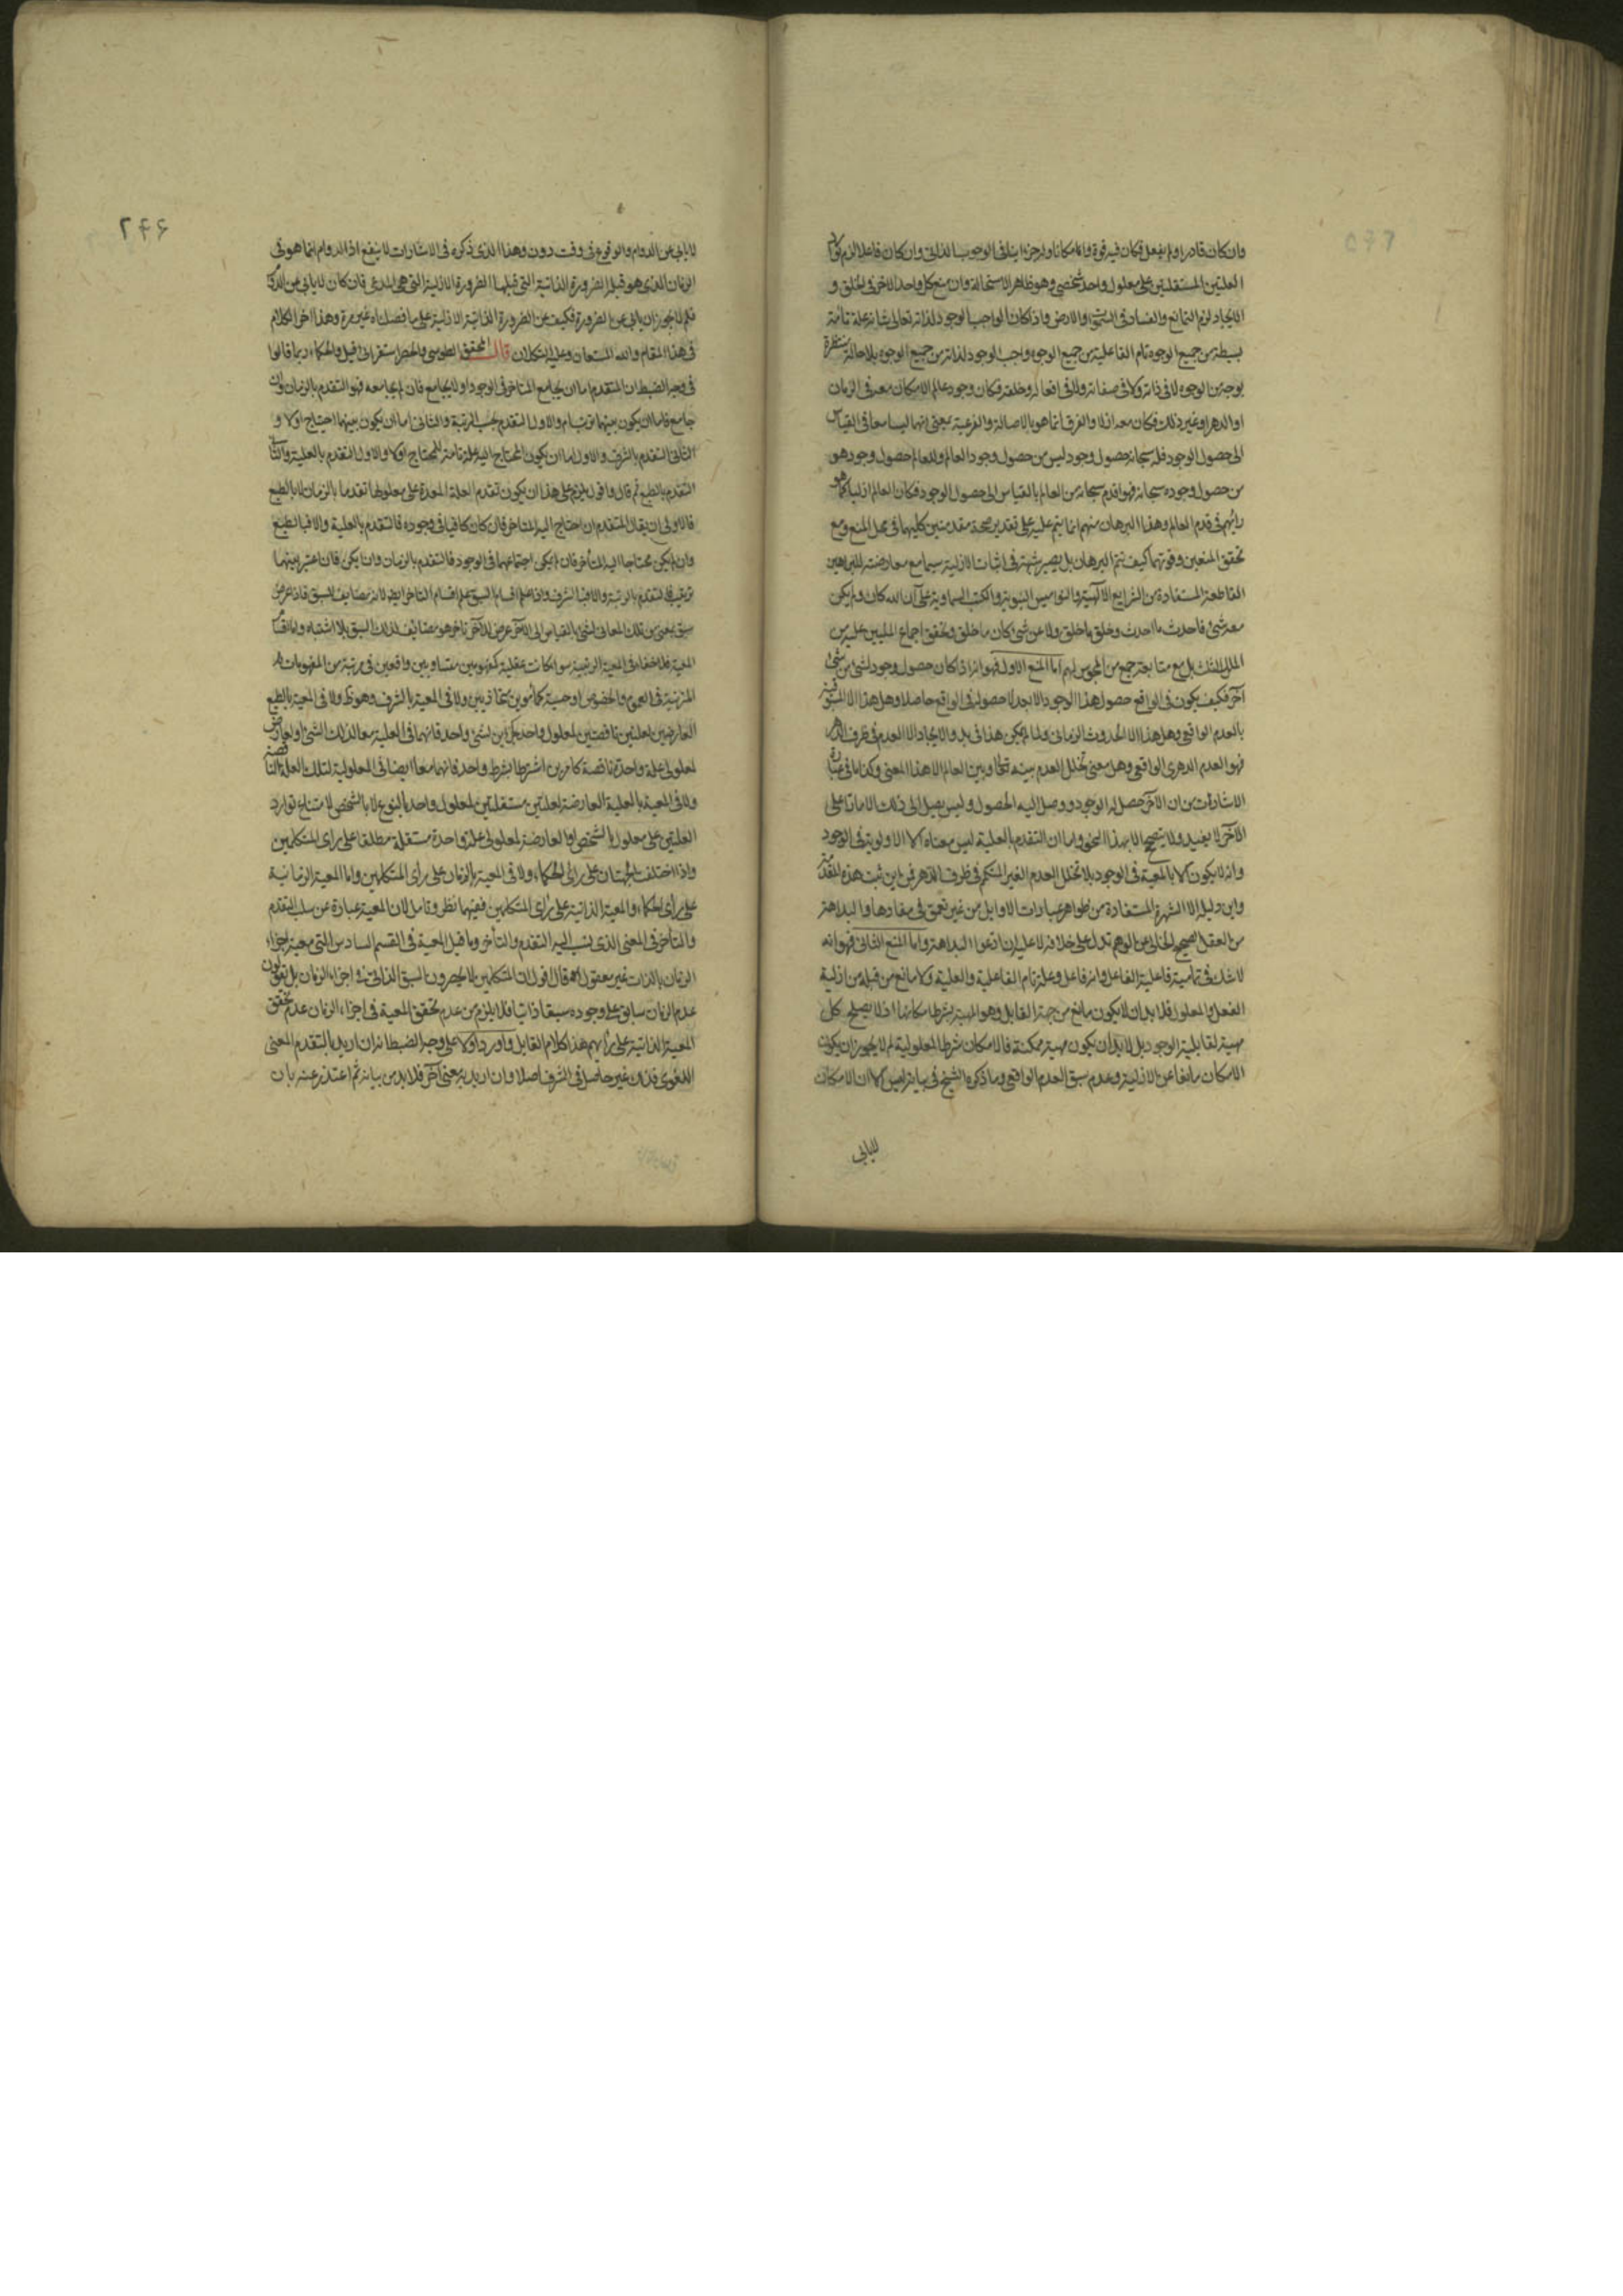 وان كان قادرا ولم يفعل فكان فيه قوة واما مكانا ولو جزءا ينافى الوجوب الذاتى وان كان فاعلا لزم
العلتين المستقلتين على معلول واحد شخصى وهو ظاهر الاستحالة وان منع كل واحد الآخر فى الخلق و
الايجاد لزم التمانع والفساد فى السموات والارض واذا كان الواجب الوجود لذاته تعالى شانه علة تامة
بسيطة من جميع الوجوه تام الفاعلية من جميع الوجوه واجب الوجود لذاته من جميع الوجوه بلا حالة منتظرة
بوجه من الوجوه لا فى ذاته ولا فى صفاته ولا فى افعاله وخلقه فكان وجود عالم الامكان معه فى الزمان
او الدهر او غير ذلك فكان معه ازلا والفرق انما هو بالاصالة والفرعية بمعنى انهما ليسا معا فى القياس
الى حصول الوجود فله سبحانه حصول وجود ليس من حصول وجود العالم وللعالم حصول وجود هو
من حصول وجوده سبحانه فهو اقدم سبحانه من العالم بالقياس الى حصول الوجود فكان العالم ازليا كما هو
رايهم فى قدم العالم وهذا البرهان منهم انما يتم عليه على تقدير صحة مقدمتين كليهما فى محل المنع ومع
تحقق المنعين وقوتهما كيف يتم البرهان بل يصير شبهة فى اثبات الازلية سيما مع معارضته للبراهين
القاطعة المستفادة من الشرايع الالهية والنواميس النبوية والكتب السماوية على ان الله كان ولم يكن
معه شئ فاحدث ما احدث وخلق ما خلق ولا عن شئ كان ما خلق وتحقق اجماع المليين عليه من
الملل الثلث بل مع متابعة جمع من المجوس لهم اما المنع الاول فهو انه اذا كان حصول وجود لشئ من شئ
آخر فكيف يكون فى الواقع حصول هذا الوجود الا بعد لا حصوله فى الواقع حاصلا وهل هذا الا المسبوقية
بالعدم الواقعى وهل هذا الا الحدوث الزمانى ولما لم يكن هذا فى بدو الايجاد الا العدم فى ظرف الدهر
فهو العدم الدهرى الواقعى وهل معنى تخلل العدم بينه تعالى وبين العالم الا هذا المعنى وكذا ما فى عبارة
الاشارات من ان الآخر حصل له الوجود ووصل اليه الحصول وليس يصل الى ذلك الا مارا على
الآخر لا يفيد ولا يصح الا بهذا النحو واما ان التقدم بالعلية ليس معناه الا الاولوية فى الوجود
وانه لا يكون الا بالمعية فى الوجود بلا تخلل العدم الغير المتكمم فى ظرف الدهر فمن اين ثبت هذه المقدمة
واين دليله الا الشهرة المستفادة من ظواهر عبارات الاوايل من غير تعمق فى مفادها والبداهة
من العقل الصحيح الخالى عن الوهم تدل على خلافه لا عليه ان ادعوا البداهة واما المنع الثانى فهو انه
لا شك فى تمامية فاعلية الفاعل وانه فاعل وعلة تام الفاعلية والعلية ولا مانع من قبله من ازلية
الفعل والمعلول فلا بد ان لا يكون مانع من جهة القابل وهو المهية بشرط امكانها اذ لا يصلح كل
مهية لقابلية الوجود بل لا بد ان يكون مهية ممكنة فالامكان شرط المعلولية لم لا يجوز ان يكون
الامكان مانعا عن الازلية وعدم سبق العدم الواقعى وما ذكره الشيخ فى بيانه ليس الا ان الامكان
لا يابى
٢٤٦
لا يابى عن الدوام والوقوع فى وقت دون وهذا الذى ذكره فى الاشارات لا ينفع اذ الدوام انما هو فى
الزمان الذى هو قبله الضرورة الذاتية التى قبلها الضرورة الازلية التى هى المدعى فان كان لا يابى عن الدوام
فلم لا يجوز ان يابى عن الضرورة فكيف عن الضرورة الذاتية الازلية على ما فصلناه غير مرة وهذا آخر الكلام
فى هذا المقام والله المستعان وعليه التكلان قال المحقق الطوسى والحصر استقرائى قيل والحكماء ربما قالوا
فى وجه الضبط ان المتقدم اما ان يجامع المتاخر فى الوجود او لا يجامع فان لم يجامعه فهو التقدم بالزمان وان
جامع فاما ان يكون بينهما ترتب ام والاول التقدم بحسب الرتبة والثانى اما ان يكون بينهما احتياج اولا و
الثانى التقدم بالشرف والاول اما ان يكون المحتاج اليه علة تامة للمحتاج اولا والاول التقدم بالعلية والثانى
التقدم بالطبع ثم قال واقول يلزم على هذا ان يكون تقدم العلة المعدة على معلولها تقدما بالزمان لا بالطبع
فالاولى ان يقال المتقدم ان احتاج اليه المتاخر فان كان كافيا فى وجوده فالتقدم بالعلية والا فبالطبع
وان لم يكن محتاجا اليه المتأخر فان لم يمكن اجتماعهما فى الوجود فالتقدم بالزمان وان امكن فان اعتبر بينهما
ترتيب فالتقدم بالرتبة والا فبالشرف واذا علم اقسام السبق علم اقسام التاخر ايضا لانه مضايف للسبق فاذا عرض
سبق بمعنى من تلك المعانى لشئ بالقياس الى الآخر عرض للآخر تاخر هو مضائف لذلك السبق بلا اشتباه واما اقسام
المعية فلا خفاء فى المعية الرتبية سواء كانت عقلية كمفهومين متساويين واقعين فى مرتبة من المفهومات
المترتبة فى العموم والخصوص او حسية كمأمومين متحاذيين ولا فى المعية بالشرف وهو ظ ولا فى المعية بالطبع
العارضين لعلتين ناقصتين لمعلول واحد كجزئين لشئ واحد فانهما فى العلية معا لذلك الشئ او لعارض
لمعلولى علة واحدة ناقصة كامرين اشترطا بشرط واحد فانهما معا ايضا فى المعلولية لتلك العلة الناقصة
ولا فى المعية بالعلية العارضة لعلتين مستقلتين لمعلول واحد بالنوع لا بالشخص لامتناع توارد
العلتين على معلول بالشخص او العارضة لمعلولى علة واحدة مستقلة مطلقا على راى المتكلمين
واذا اختلفت الجهتان على راى الحكماء ولا فى المعية بالزمان على رأى المتكلمين واما المعية الزمانية
على رأى الحكماء والمعية الذاتية على رأى المتكلمين ففيهما نظر وتامل لان المعية عبارة عن سلب التقدم
والتأخر فى المعنى الذى نسب اليه التقدم والتأخر وما قيل المعية فى القسم السادس التى معية اجزاء
الزمان بالذات غير معقول اه قال اقول ان المتكلمين لا يحصرون السبق الذاتى فى اجزاء الزمان بل يقولون
عدم الزمان سابق على وجوده سبقا ذاتيا فلا يلزم من عدم تحقق المعية فى اجزاء الزمان عدم تحقق
المعية الذاتية على رأيهم هذا كلام القايل واورد اولا على وجه الضبط انه ان اريد بالتقدم المعنى
اللغوى فذلك غير حاصل فى الشرف اصلا وان اريد به معنى آخر فلا بد من بيانه ثم اعتذر عنه بان